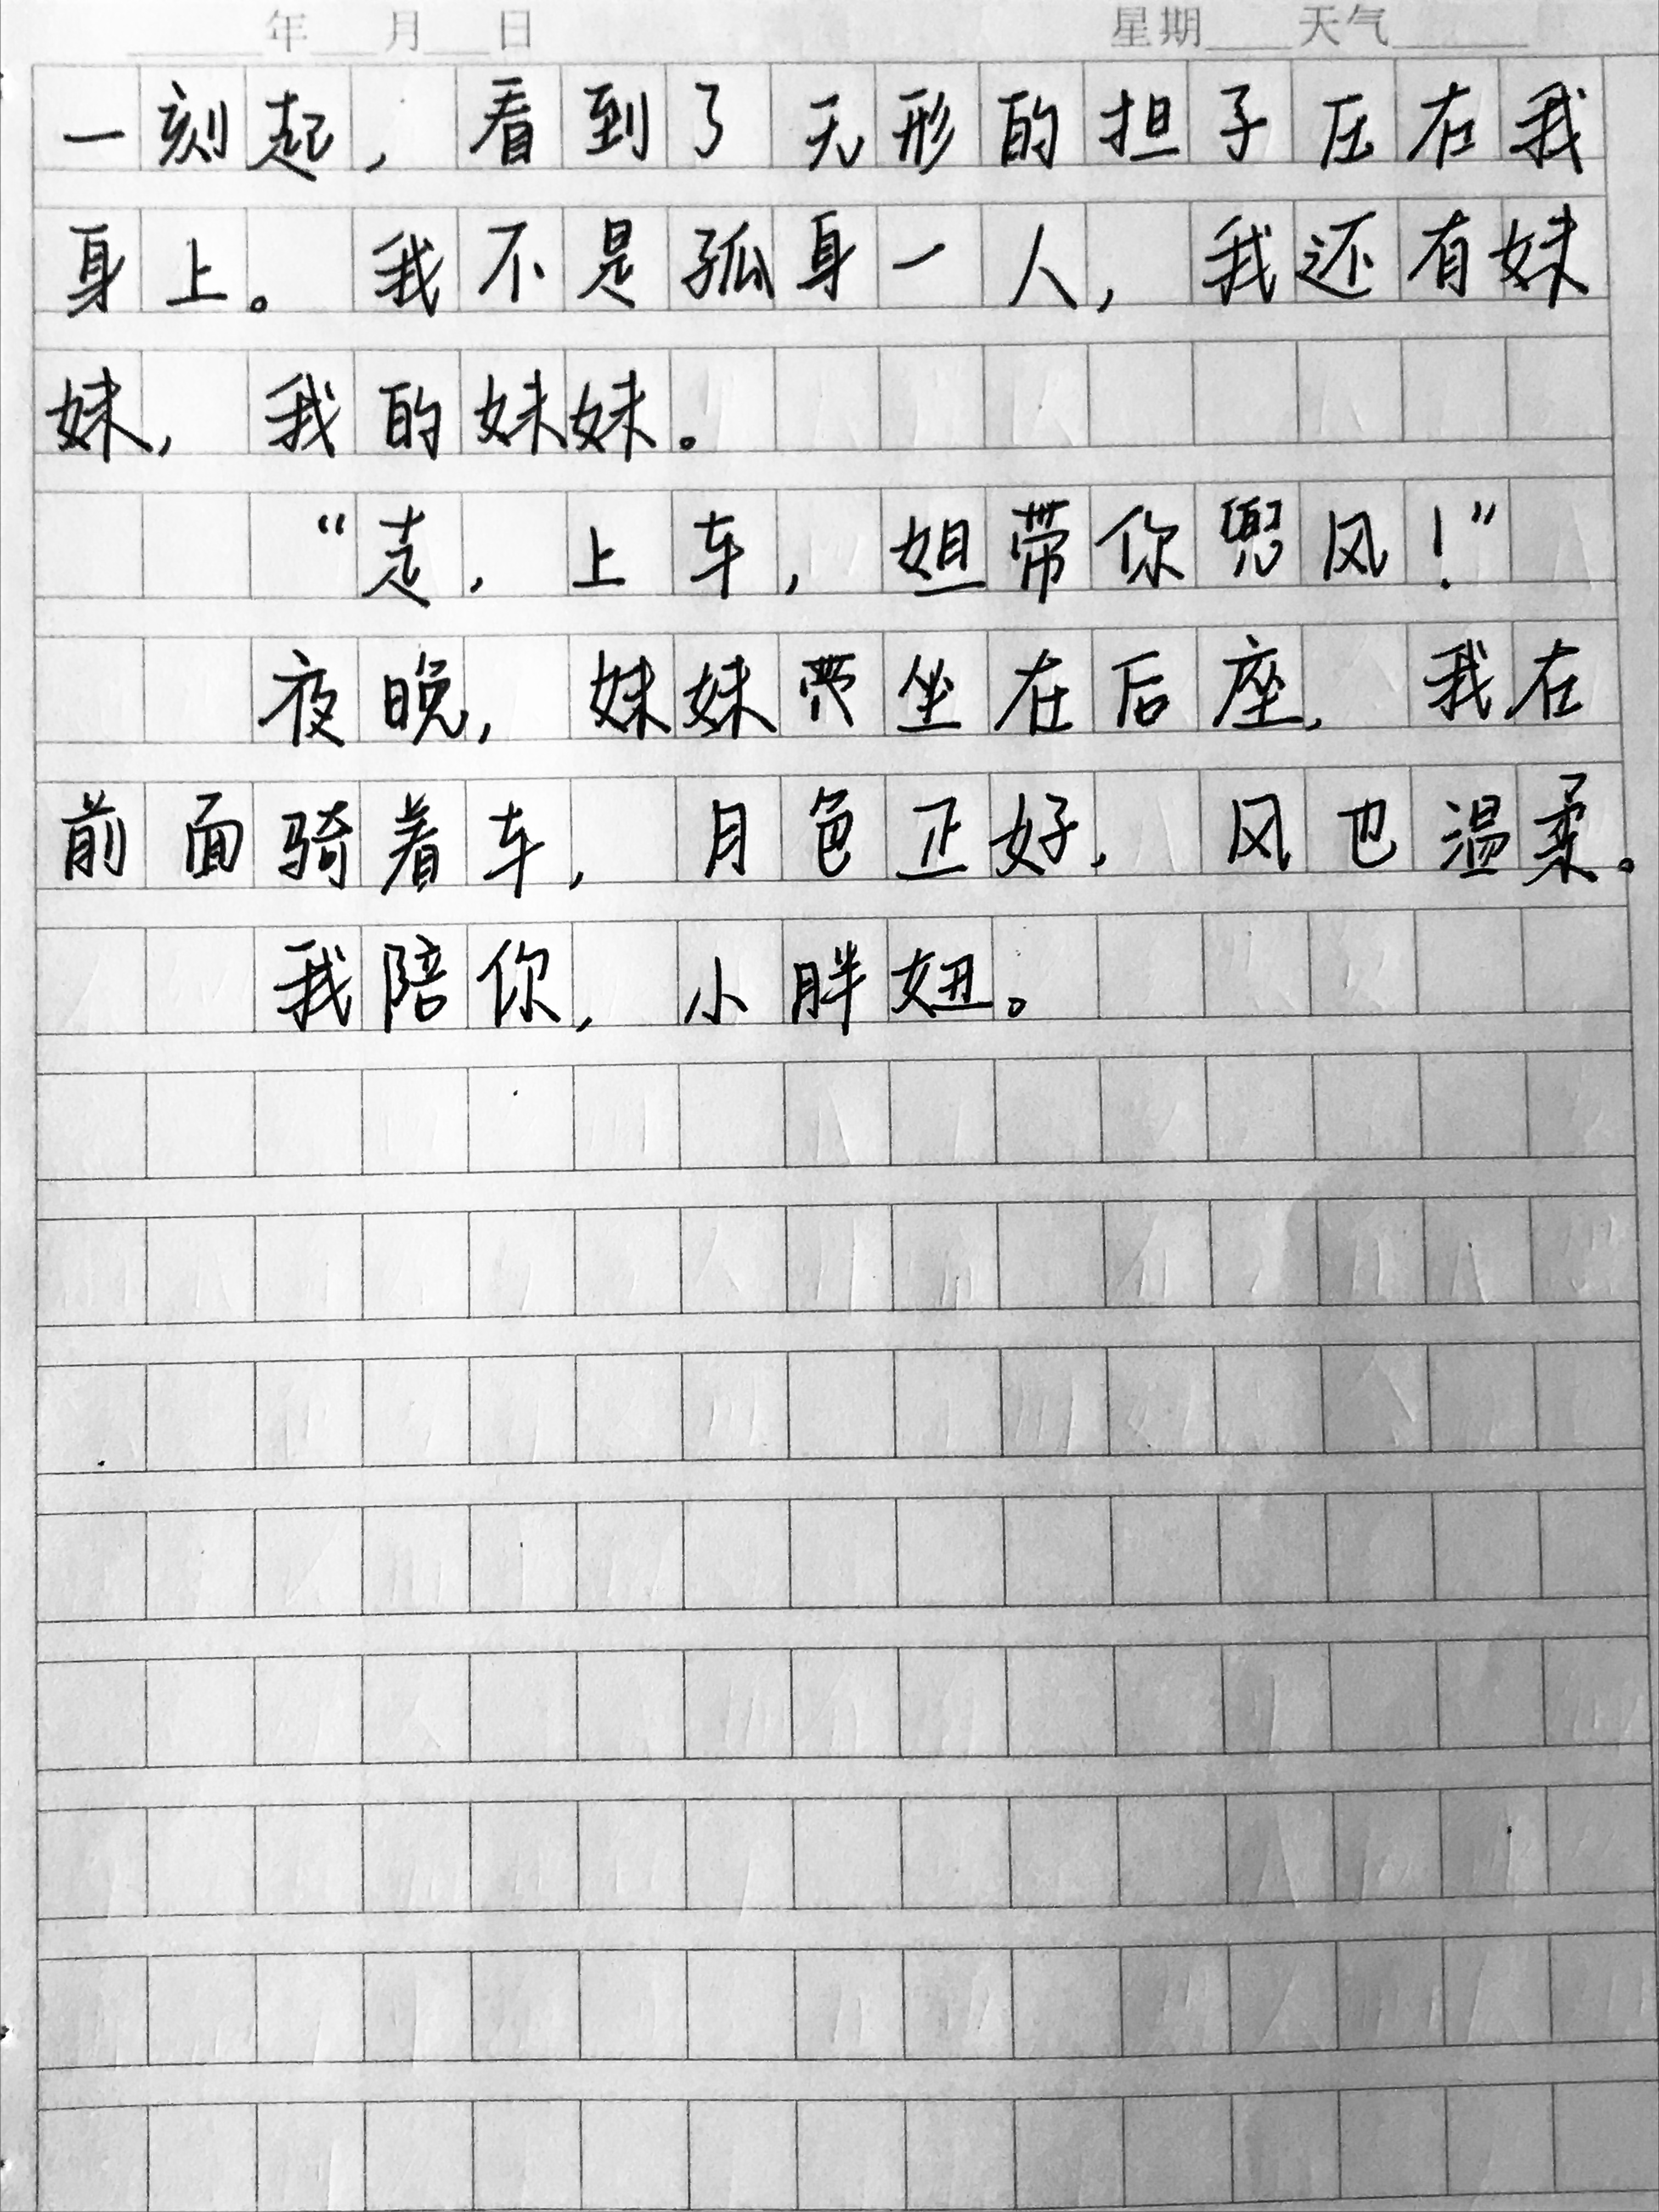 年 月 日 星期 天气
一刻起，看到了无形的担子压在我
身上。我不是孤身一人，我还有妹
妹，我的妹妹。
“走，上车，姐带你兜风！”
夜晚，妹妹坐在后座，我在
前面骑着车，月色正好，风也温柔。
我陪你，小胖妞。